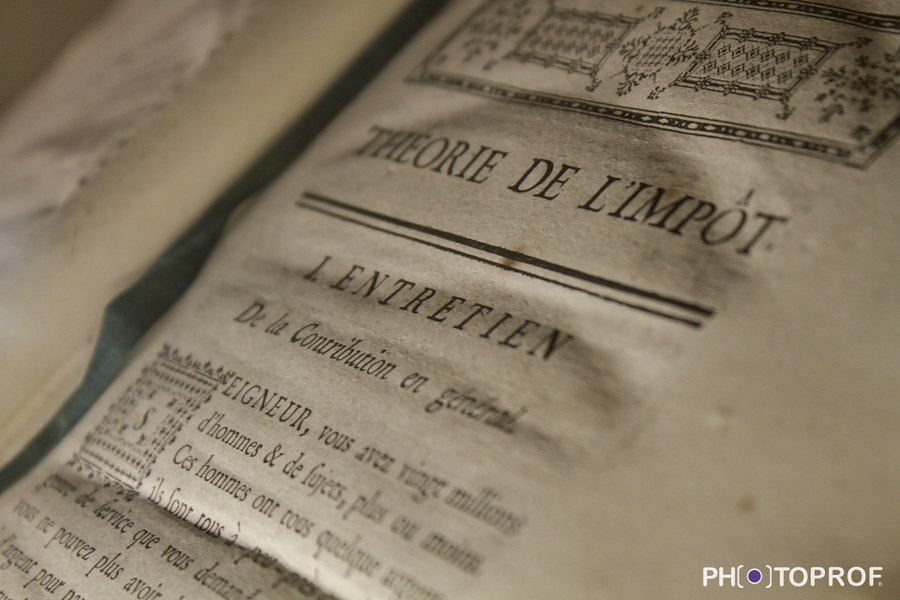 THÉORIE DE L'IMPÔT.
I. ENTRETIEN
De la Contribution en général.
SEIGNEUR, vous avez vingt millions
d'hommes & de sujets, plus ou moins.
Ces hommes ont tous quelque argent
ils sont tous à peu près
genre de service que vous
vous ne pouvez plus avoir
d'argent pour
PH(●)TOPROF